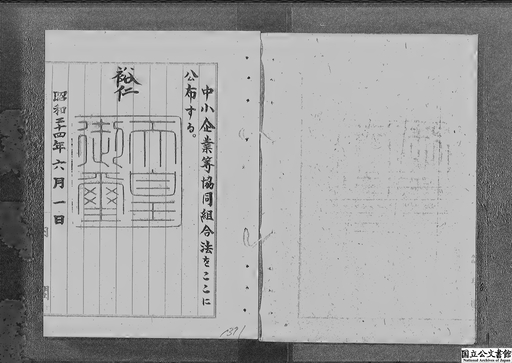 中小企業等協同組合法をここに
公布する。
裕仁
天皇
御璽
昭和二十四年六月一日
国立公文書館
National Archives of Japan